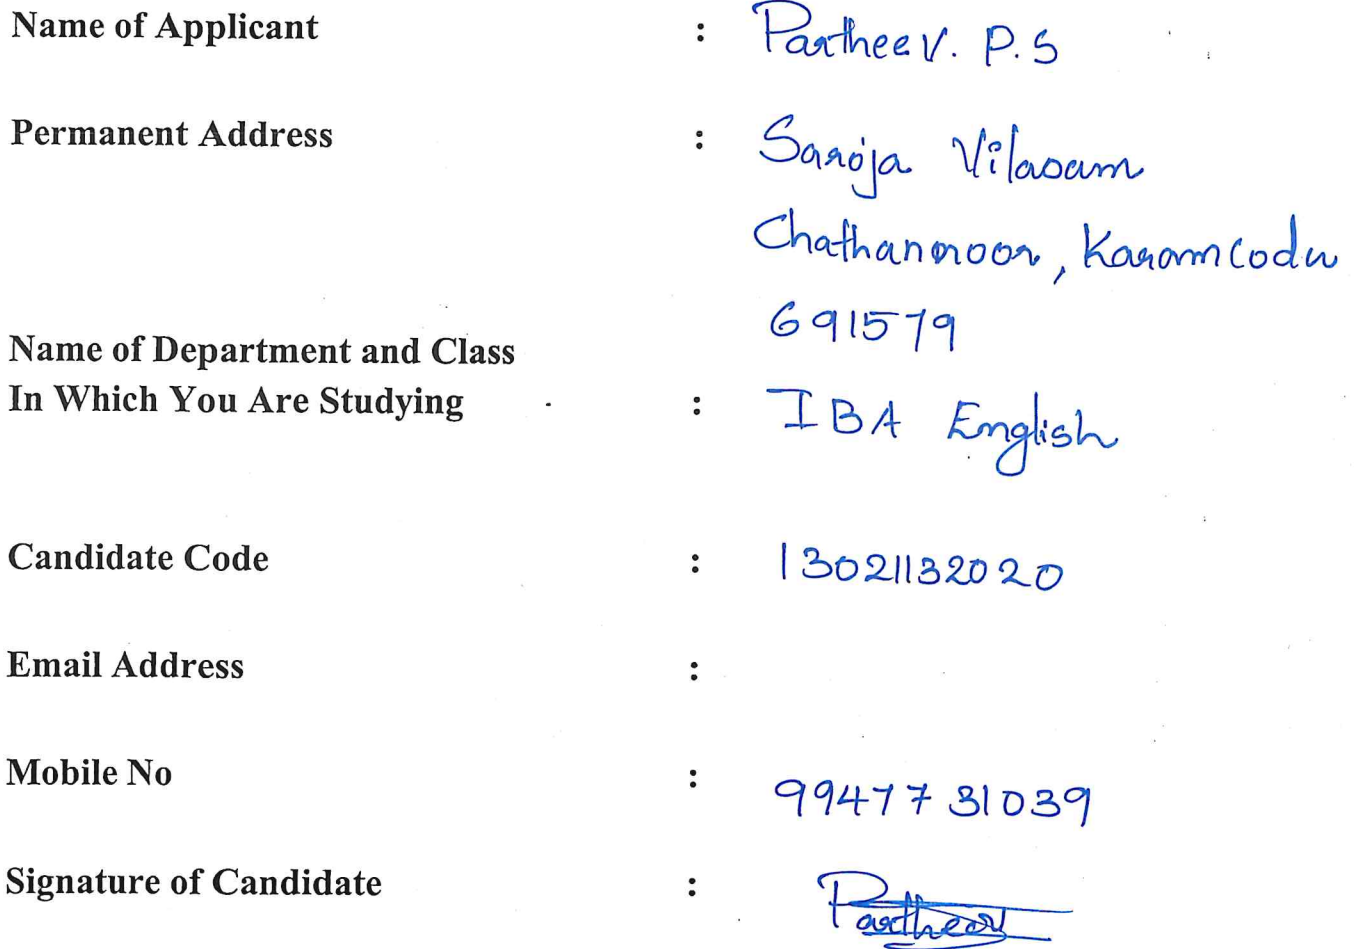 Name of Applicant : Partheev. P.S
Permanent Address : Saroja Vilasam
Chathannoor, Karamcodu
691579
Name of Department and Class
In Which You Are Studying : I BA English
Candidate Code : 13021132020
Email Address :
Mobile No : 9947731039
Signature of Candidate : Partheev